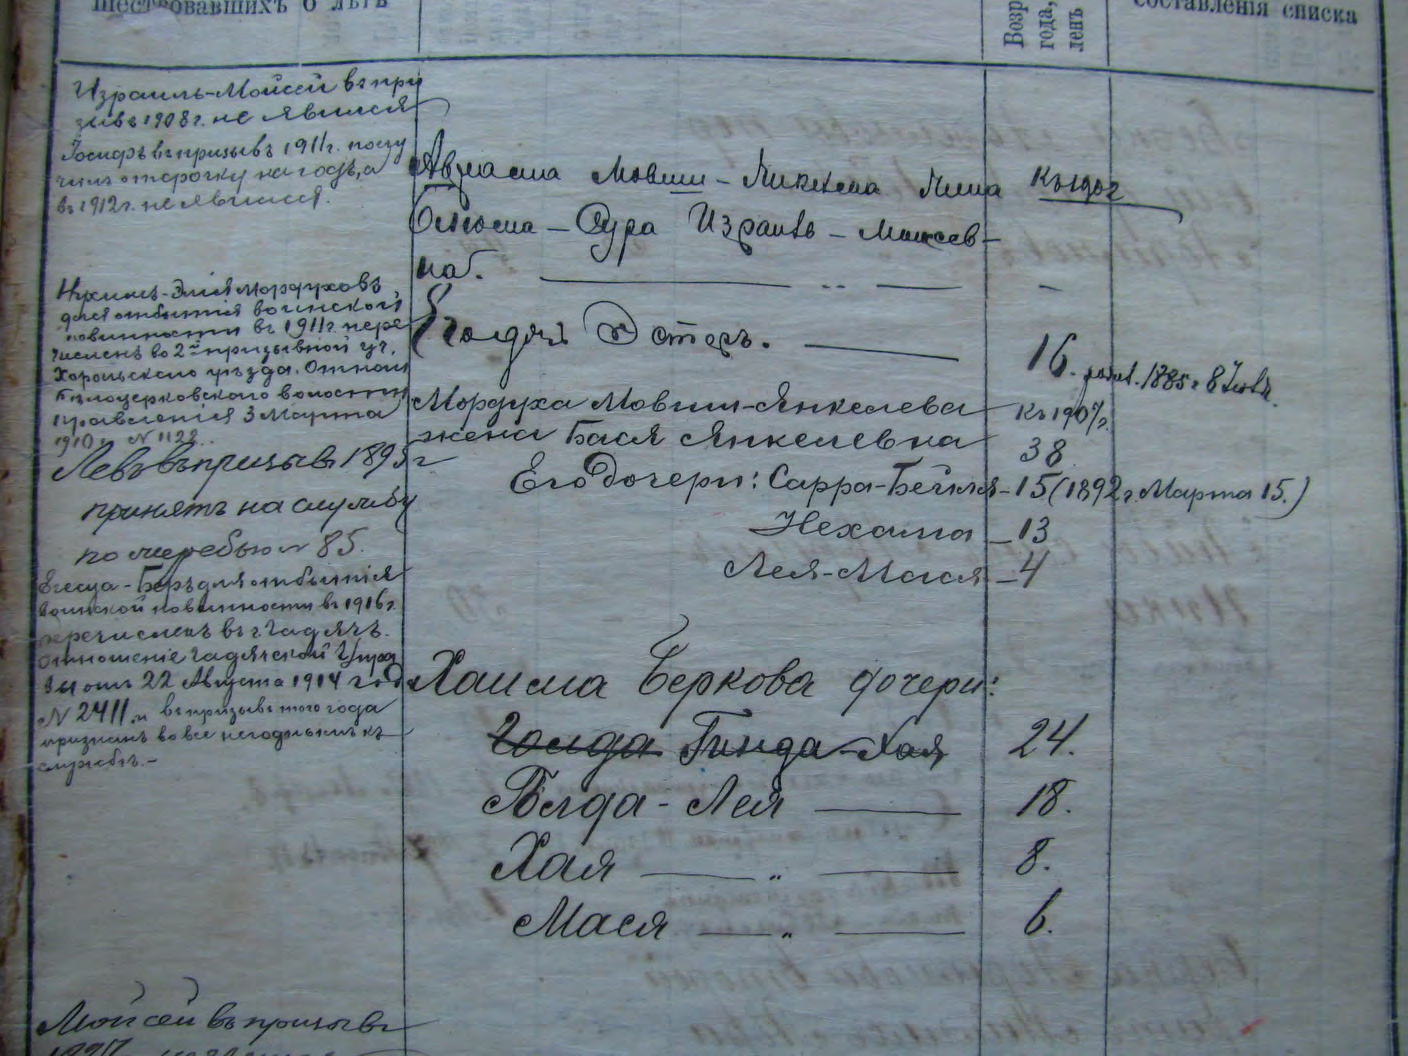 шествовавшихъ 6 лѣтъ
Возр
года,
лень
составленія списка
Израиль-Мойсей въ при
зывъ 1908 г. не явился
Іосифъ въ призывъ 1911 г. полу
чилъ отсрочку на годъ, а
въ 1912 г. не явился.
Нухимъ-Элія Мордуховъ
для отбытія воинской
повинности въ 1911 г. пере
численъ во 2й призывной уч.
Хорольскаго уѣзда. Отнош
Бѣлоцерковскаго волостн
правленія 3 Марта
1910 г. N 1122.
Левъ въ призывъ 1895 г
принятъ на службу
по жребью N 85.
Беръ для отбытія
воинской повинности въ 1916 г.
перечисленъ въ г. Гадячъ.
Отношеніе Гадячской Упра
вы отъ 22 Августа 1914 год
N 2411. и въ призывъ того года
признанъ вовсе негоднымъ къ
службѣ.-
Мойсей въ призывъ
Авраама Мовши-Янкелева жена
Сура Израиль-Моисеев-
на. — „ — -
Эстеръ. — 16. 1885 г 8
Мордуха Мовши-Янкелева къ 1907 г.
жена Бася Янкелевна 38
Его дочери: Сарра-Бейля - 15 (1892 г. Марта 15.)
Нехама - 13
Лея-Мася - 4
Хаима Беркова дочери:
Голда Гинда-Хая 24.
Лея — 18.
Хая — „ — 8.
Мася — „ — 6.